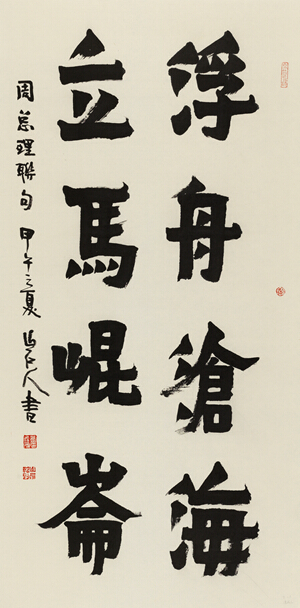 浮舟滄海
立馬崐崙
周总理聯句 甲午之夏 人書